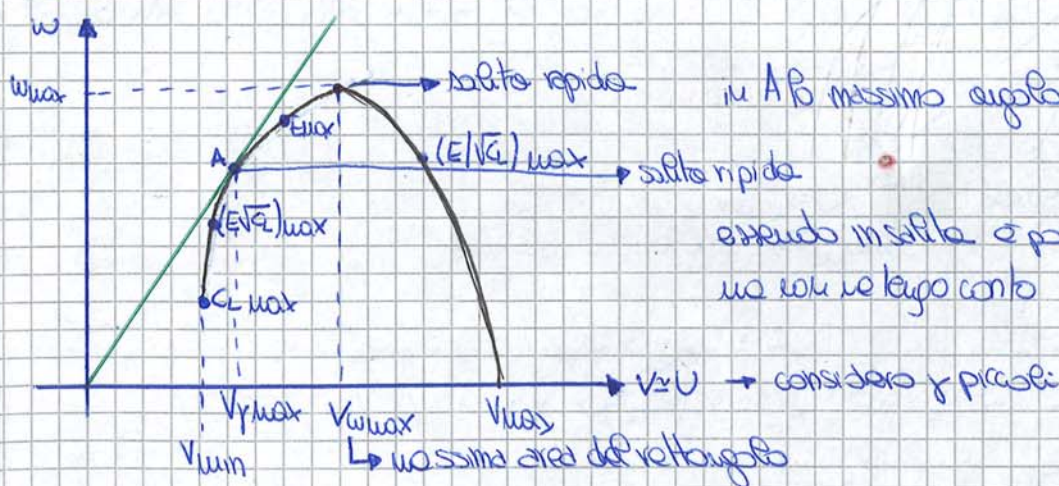 w
wmax
salita rapida
in A ho massimo angolo
Emax
A
(E/√CL)max
salita ripida
(E√CL)max
essendo in salita è po
ma non ne tengo conto
CLmax
V≃U → considero γ piccoli
Vγmax
Vwmax
Vmax
Vmin
↳ massima area del rettangolo